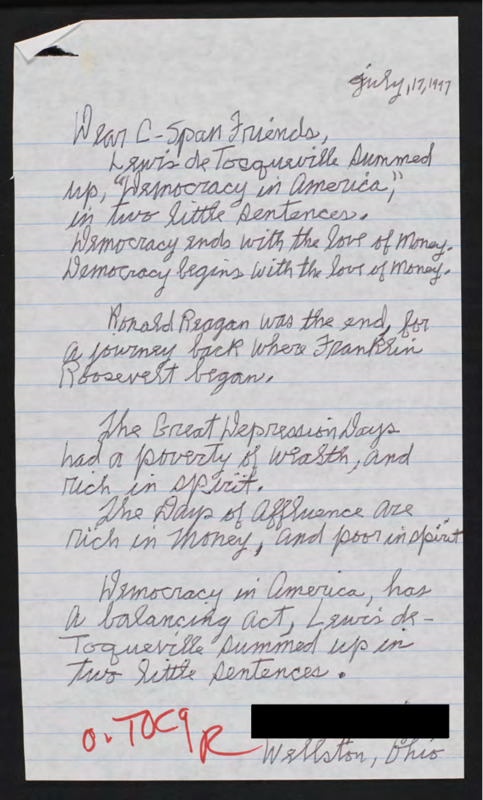 July, 17, 1997
Dear C-Span Friends,
Lewis de Tocqueville summed
up, "Democracy in America,"
in two little sentences.
Democracy ends with the love of money.
Democracy begins with the love of money.
Ronald Reagan was the end, for
a journey back where Franklin
Roosevelt began.
The Great Depression Days
had a poverty of wealth, and
rich in spirit.
The Days of Affluence are
rich in money, and poor in spirit
Democracy in America, has
a balancing act, Lewis de-
Toqueville summed up in
two little sentences.
O. TOC9
R
Wellston, Ohio